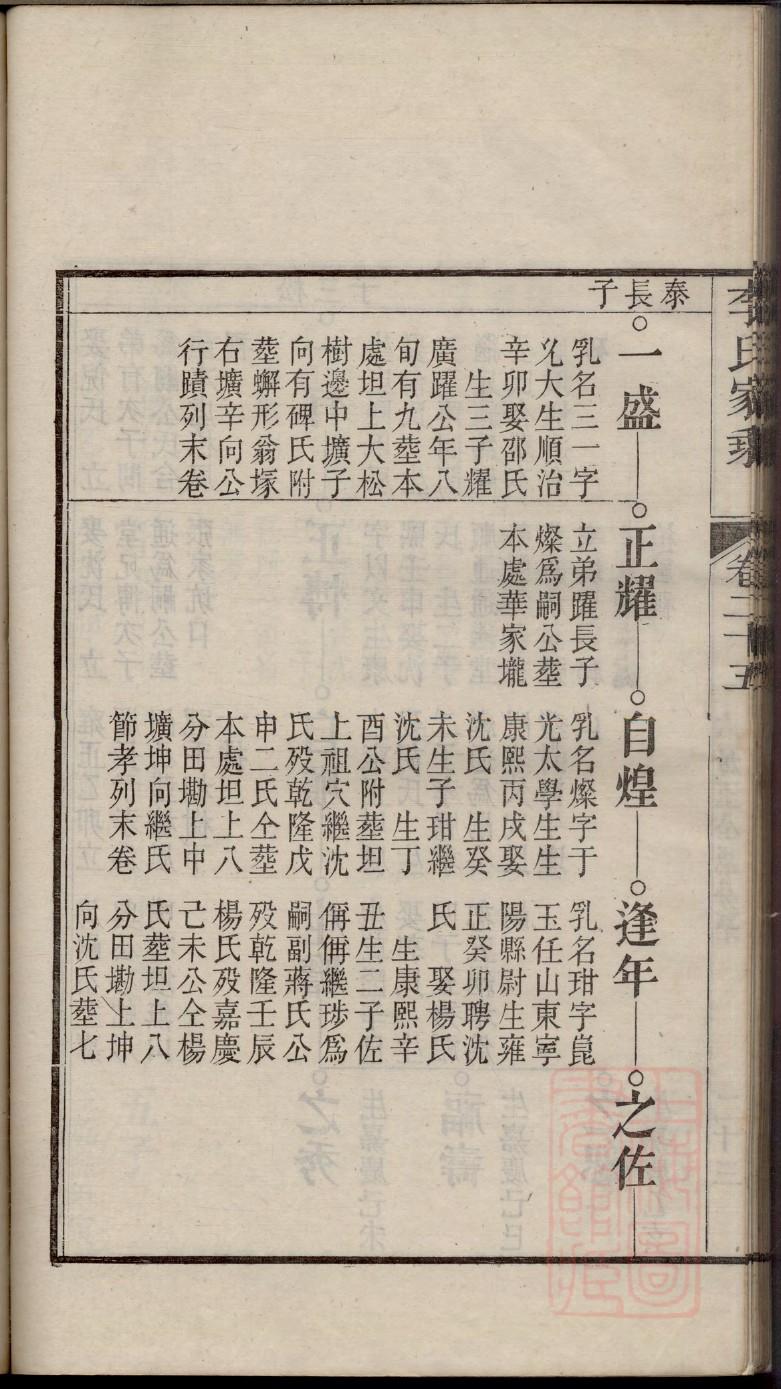 氏家乘
卷二十五
泰長子
一盛
乳名三一字
允大生順治
辛卯娶邵氏
生三子耀
廣躍公年八
旬有九塟本
處坦上大松
樹邊中壙子
向有碑氏附
塟蠏形翁塚
右壙辛向公
行蹟列末卷
正耀
立弟躍長子
燦爲嗣公塟
本處華家壠
自煌
乳名燦字于
光太學生生
康熙丙戌娶
沈氏 生癸
未生子玵繼
沈氏 生丁
酉公附塟坦
上祖穴繼沈
氏歿乾隆戊
申二氏仝塟
本處坦上八
分田墈上中
壙坤向繼氏
節孝列末卷
逢年
乳名玵字崑
玉任山東寧
陽縣尉生雍
正癸卯聘沈
氏 娶楊氏
生康熙辛
丑生二子佐
偁偁繼琇爲
嗣副蔣氏公
歿乾隆壬辰
楊氏歿嘉慶
己未公仝楊
氏塟坦上八
分田墈上坤
向沈氏塟七
之佐